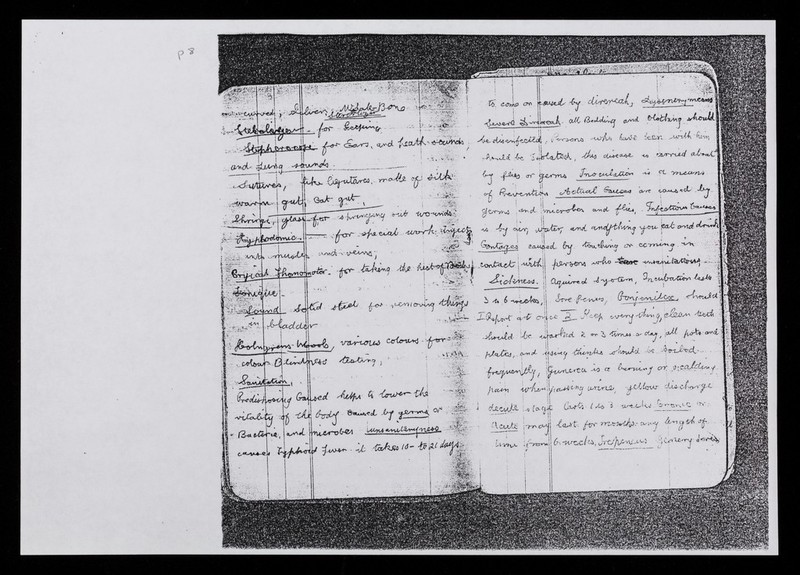 p 8
curved, Silver, Metal Bone
for keeping
for Ears, and heath sounds,
and Lung sounds.
Sutures, like ligutares. made of silk
warm gut, Cat gut,
Shringe, glass for shringing out wounds
for special work injects
into muscles and veins,
for taking the heat of Body
Sound solid steel for removing things
in bladder
various colours for
colour Blindness testing,
Sanitation,
Predisposing Caused helps to lower the
vitality of the body Caused by germs or
Bacteria, and microbes
causes Typhoid Fever. it takes 10 to 21 days
to come on caused by direreah, means
Severe all Bedding and Clothing should
be disinfected, Persons who have been with him
should be Isolated, this disease is carried about
by flies or germs Inoculation is a means
of Prevention Actual Causes are caused by
germs and microbes and flies, Infection Causes
is by air, water, and anything you eat and drink
Contages caused by touching or coming in
contact with persons who
Sickness. Aquired System, Incubation lasts
3 to 6 weeks, should
I Report at once Keep everything clean
should be washed 2 or 3 times a day, all pots and
plates, and using things should be boiled
frequently, is a burning or scalding
pain when passing urine, yellow discharge
stage lasts 1 to 3 weeks or
may last for months any length of
time from 6 weeks,